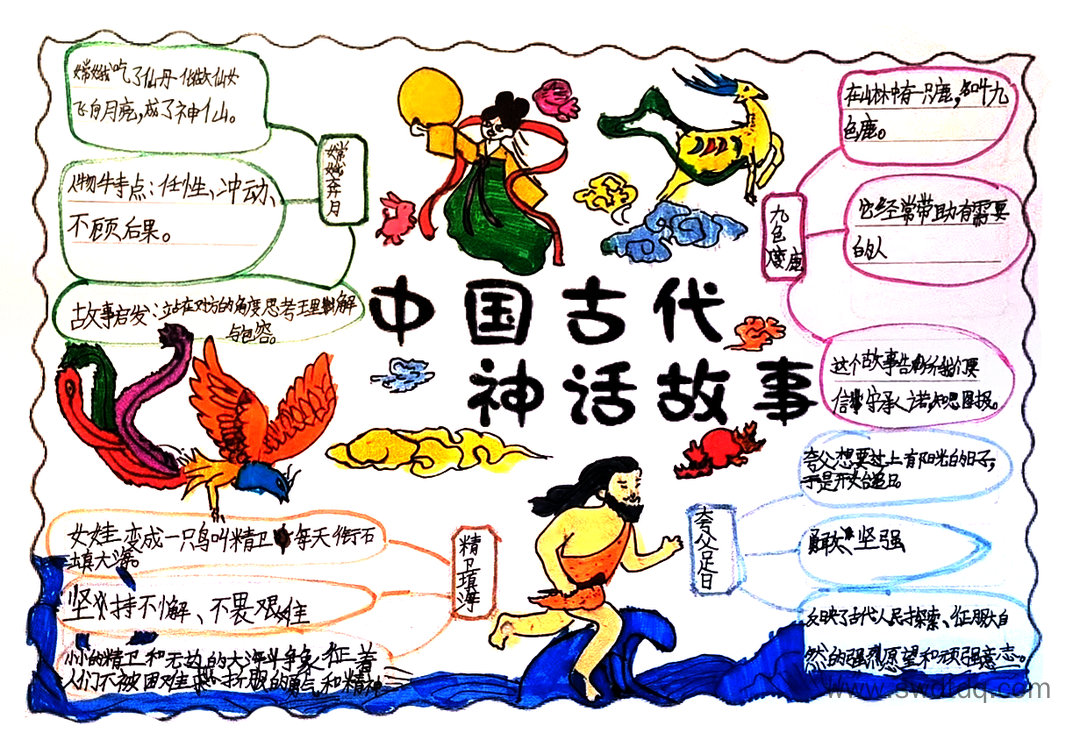 中国古代
神话故事
嫦娥吃了仙丹化做仙女
飞向月亮,成了神仙。
人物特点:任性、冲动、
不顾后果。
故事启发:站在对方的角度思考
与包容。
嫦娥奔月
在山林中有一只鹿,名叫九
色鹿。
它经常帮助有需要
的人
这个故事告诉我们要
信守承诺,知恩图报。
九色鹿
女娃变成一只鸟叫精卫每天衔石
填大海。
坚持不懈、不畏艰难
小小的精卫和无边的大海斗争象征着
人们不被困难折服的勇气和精神
精卫填海
夸父想要过上有阳光的日子,
于是开始追日。
勇敢、坚强
反映了古代人民探索、征服大自
然的强烈愿望和顽强意志。
夸父足日